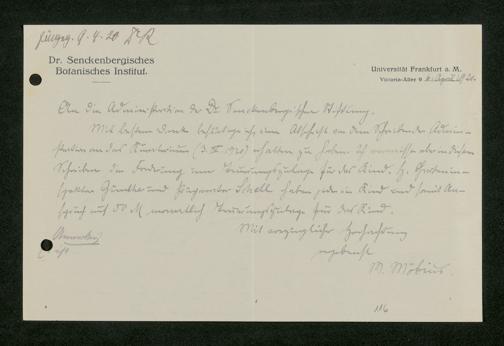 Eingeg. 9.4.20 Dr R
Dr. Senckenbergisches
Botanisches Institut.
Universität Frankfurt a. M.
Victoria-Allee 9 April 1920.
An die Administration der Dr. Senckenbergischen Stiftung.
Mit bestem Dank bestätige ich, eine Abschrift von dem Schreiben der Admini-
stration an das Kuratorium (3. IV 1920) erhalten zu haben. Ich vermisse aber in diesem
Schreiben die Forderung von Teuerungszulage für das Kind. H. Garten-
inspektor Günther und Schell haben je ein Kind und somit An-
spruch auf 50 M monatlich Teuerungszulage für das Kind.
Mit vorzüglicher Hochachtung
ergebenst
M. Möbius.
116